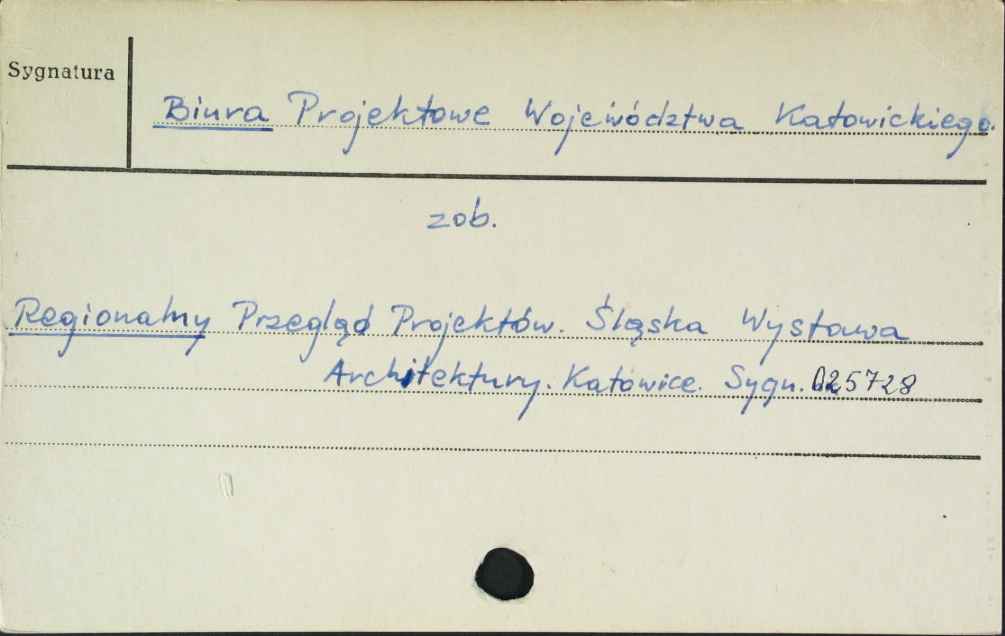 Sygnatura
Biura Projektowe Województwa Katowickiego.
zob.
Regionalny Przegląd Projektów. Śląska Wystawa
Architektury. Katowice. Sygn. 025728